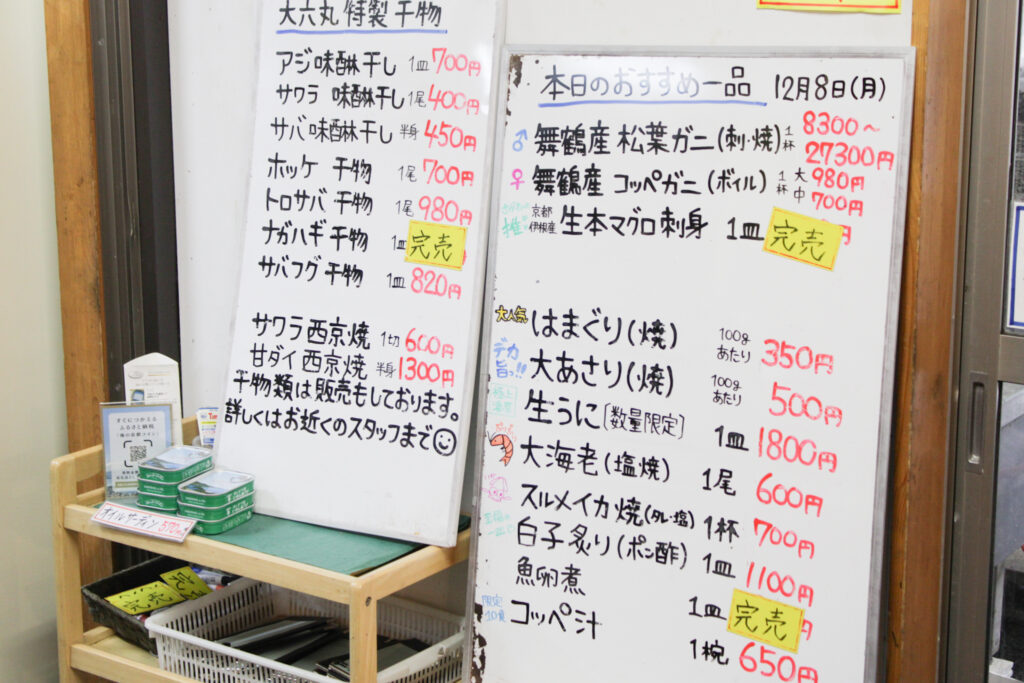 大六丸 特製 干物
アジ味醂干し 1皿 700円
サワラ 味醂干し 1尾 400円
サバ味醂干し 半身 450円
ホッケ 干物 1尾 700円
トロサバ 干物 1尾 980円
ナガハギ干物 1皿 完売
サバフグ 干物 1皿 820円
サワラ西京焼 1切 600円
甘ダイ西京焼 半身 1300円
干物類は販売もしております。
詳しくはお近くのスタッフまで
本日のおすすめ一品 12月8日(月)
♂ 舞鶴産 松葉ガニ(刺・焼) 1杯 8300〜27300円
♀ 舞鶴産 コッペガニ(ボイル) 1杯 大 980円 中 700円
推 京都伊根産 生本マグロ刺身 1皿 完売
大人気 はまぐり(焼) 100gあたり 350円
デカ旨っ!! 大あさり(焼) 100gあたり 500円
極上 生うに[数量限定] 1皿 1800円
大海老(塩焼) 1尾 600円
スルメイカ焼(タレ・塩) 1杯 700円
白子炙り(ポン酢) 1皿 1100円
魚卵煮 1皿 完売
限定 コッペ汁 1椀 650円
すぐにつかえる
ふるさと納税
オイルサーディン 570円
完売
完売